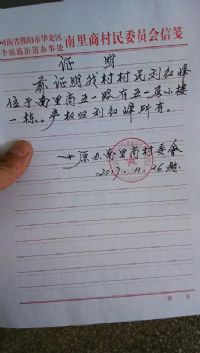 河南省濮阳市华龙区
十里铺街道办事处 南里商村民委员会信笺
证 明
兹证明我村村民刘红峰
位于南里商五一路有五一层小楼
一栋。产权归刘红峰所有。
南里商村委会
2017.11.26
第 页